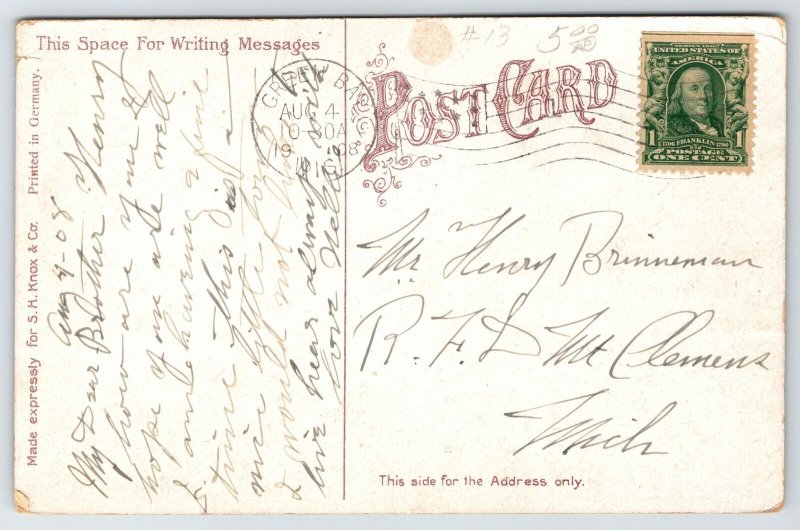 This Space For Writing Messages
Aug 4-08
My Dear Brother Henry
how are you I
hope you are well
I am having a fine
time this is a
nice little town
I would not
live hear always
love Nellie
Made expressly for S. H. Knox & Co. Printed in Germany.
#13 5.00
GREEN BAY
AUG 4
10-30A
1908
WIS
POST CARD
SERIES 1902
UNITED STATES OF
AMERICA
1706 FRANKLIN 1790
1 POSTAGE 1
ONE CENT
Mr Henry Brinneman
R. F. D Mt Clemens
Mich
This side for the Address only.